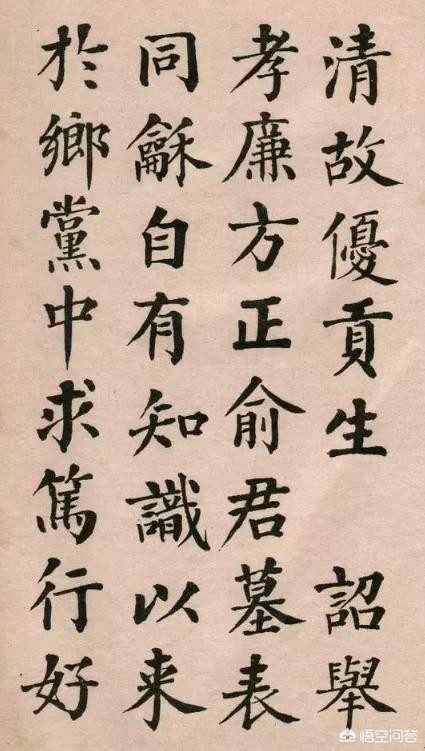 清故優貢生 詔舉
孝廉方正俞君墓表
同龢自有知識以来
於鄉黨中求篤行好
悟空问答